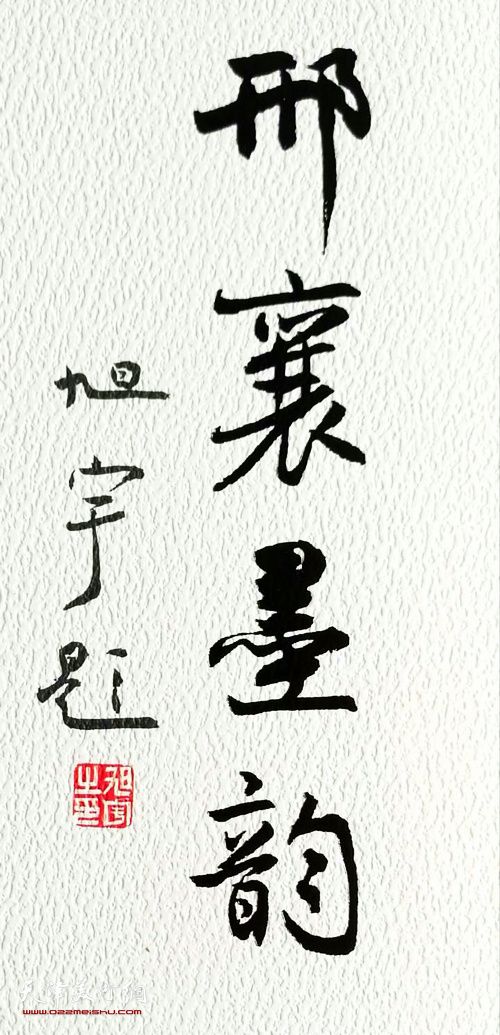 邢襄墨韵
旭宇题
旭宇之印
天津美术网
www.022meishu.com